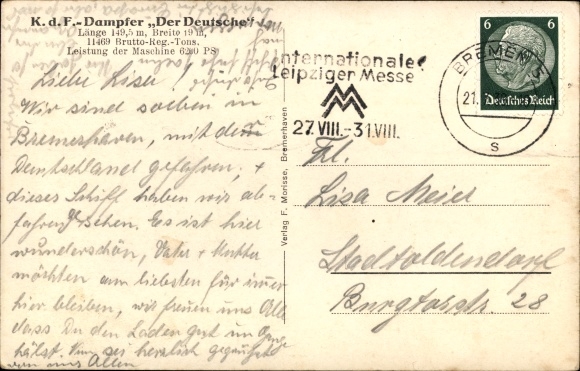 K. d. F.-Dampfer „Der Deutsche"
Länge 149,5 m, Breite 19 m,
11469 Brutto-Reg.-Tons.
Leistung der Maschine 6200 PS
Liebe Lisa!
Wir sind soeben in
Bremerhaven, mit dem
Deutschland gefahren, +
dieses Schiff haben wir ab-
fahren sehen. Es ist hier
wunderschön, Vater + Mutter
möchten am liebsten für immer
hier bleiben, wir freuen uns Alle
dass Du den Laden gut im Gange
hälst. Nun sei herzlich gegrüßt
von uns Allen
Verlag F. Morisse, Bremerhaven
Internationale
Leipziger Messe
27.VIII.-31.VIII.
BREMEN 5
21.
s
6 6
Deutsches Reich
Frl.
Lisa Meier
Stadtoldendorf
Burgtorstr. 28